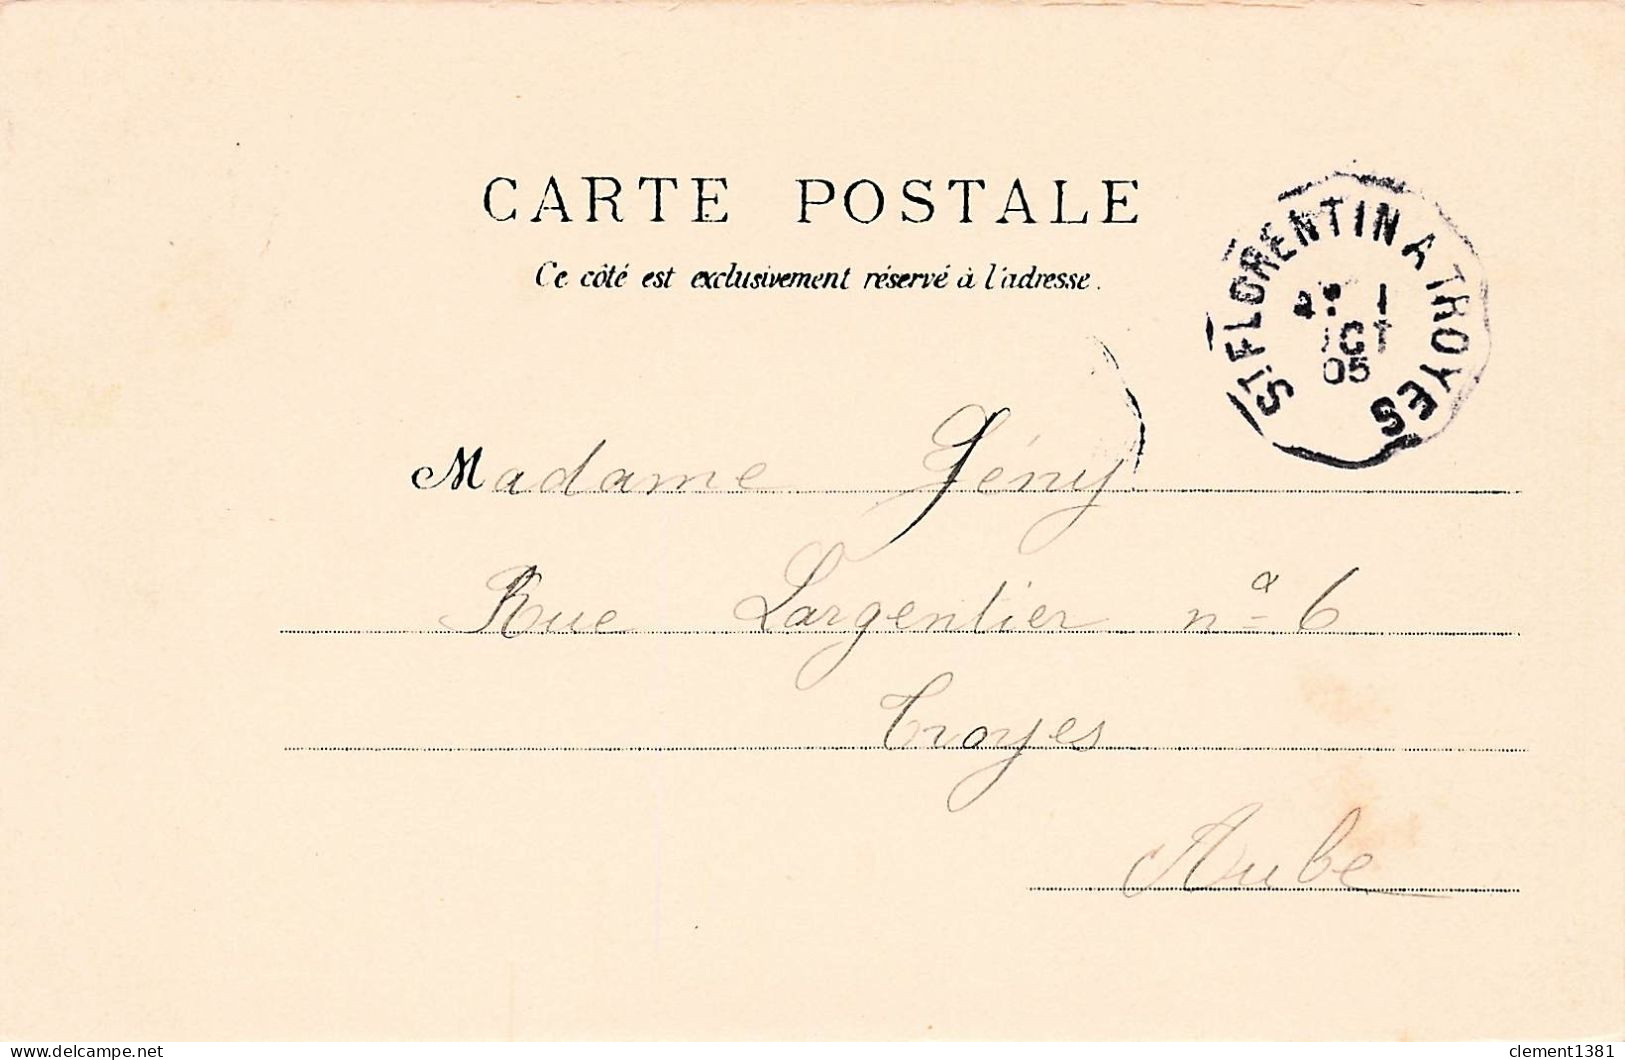 CARTE POSTALE
Ce côté est exclusivement réservé à l'adresse.
ST FLORENTIN A TROYES
1
OCT
05
Madame Gény
Rue Largentier n° 6
Troyes
Aube
delcampe.net
clement1381